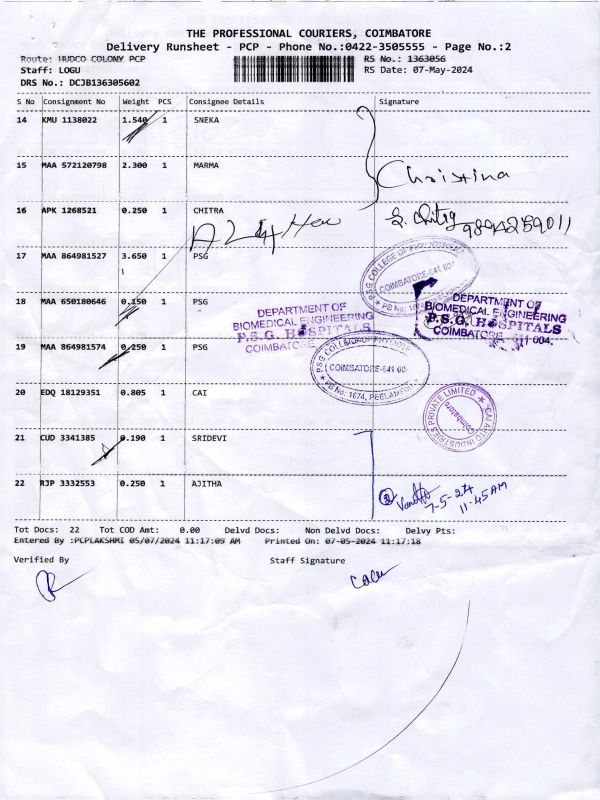 THE PROFESSIONAL COURIERS, COIMBATORE
Delivery Runsheet - PCP - Phone No.:0422-3505555 - Page No.:2
Route: HUDCO COLONY PCP
RS No.: 1363056
Staff: LOGU
RS Date: 07-May-2024
DRS No.: DCJB136305602
S No Consignment No Weight PCS Consignee Details Signature
14 KMU 1138022 1.540 1 SNEKA
15 MAA 572120798 2.300 1 MARMA
Christina
16 APK 1268521 0.250 1 CHITRA
S. Chitra
9894259011
17 MAA 864981527 3.650 1 PSG
PSG COLLEGE OF
COIMBATORE-641 00
18 MAA 650180646 0.150 1 PSG
DEPARTMENT OF
BIOMEDICAL ENGINEERING
P.S.G. HOSPITALS
COIMBATORE
DEPARTMENT OF
BIOMEDICAL ENGINEERING
P.S.G. HOSPITALS
COIMBATORE 004.
19 MAA 864981574 0.250 1 PSG
PSG COLLEGE OF
COIMBATORE-641 00
PB No: 1674, PEELAMEDU
20 EDQ 18129351 0.805 1 CAI
CAI AUTO INDUSTRIES PRIVATE LIMITED
Coimbatore
21 CUD 3341385 0.190 1 SRIDEVI
22 RJP 3332553 0.250 1 AJITHA
7-5-24
11-45AM
Tot Docs: 22 Tot COD Amt: 0.00 Delvd Docs: Non Delvd Docs: Delvy Pts:
Entered By :PCPLAKSHMI 05/07/2024 11:17:09 AM Printed On: 07-05-2024 11:17:18
Verified By Staff Signature